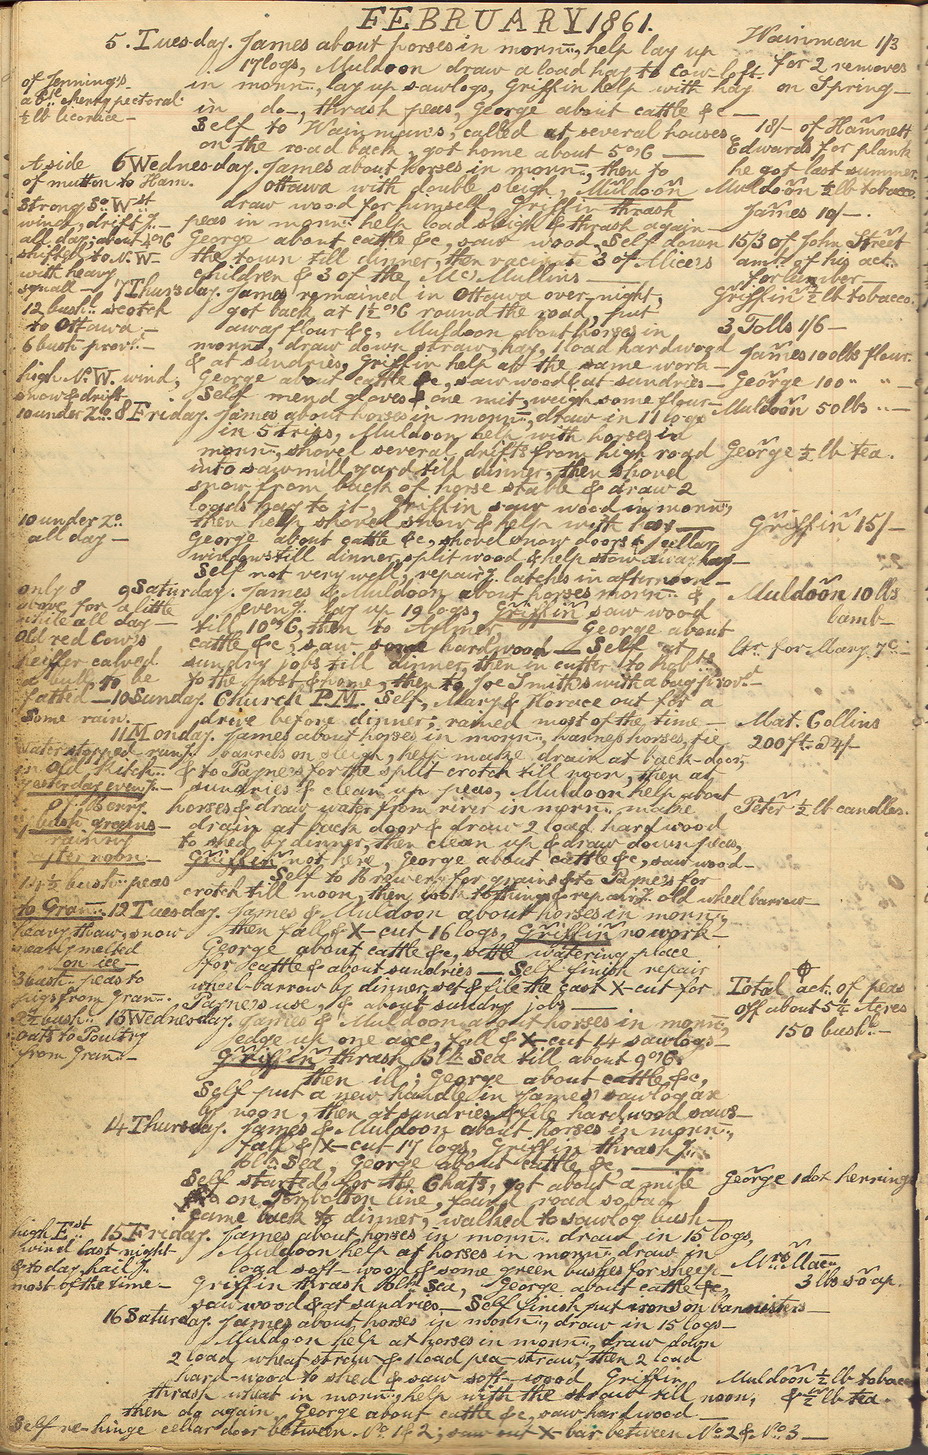 FEBRUARY 1861.
5. Tuesday. James about horses in morng., help lay up
17 logs, Muldoon draw a load hay to Cow-loft.
in morng., lay up sawlogs, Griffin help with hay
in do—, thrash peas, George about cattle &c—
Self to Wainman's, called at several houses
on the road back, got home about 5 o'c —
Wainman 1/3
for 2 removes
on Spring—
of Jenning's
pectoral
½ lb licorice—
18/- of Hamnett
Edwards for plank
he got last summer.
A side
of mutton to Ham.
6 Wednesday. James about horses in morng., then to
Ottawa with double sleigh, Muldoon
draw wood for himself, Griffin thrash
peas in morng. help load sleigh & thrash again—
George about cattle &c, saw wood. Self down
the town till dinner, then vaccinate 3 of Alice's
children & 3 of the McMullins—
Muldoon ½ lb tobacco.
James 10/-.
15/3 of John Street
amt. of his act.
for lumber
Strong So. Wst.
wind, drift g.
all day; about 4 o'c
shifted to N.W.
with heavy
squall—
17 Thursday. James remained in Ottawa over night,
got back at 1½ o'c round the road, put
away flour &c, Muldoon about horses in
morng., draw down straw, hay, 1 load hardwood
& at sundries, Griffin help at the same work—
George about cattle &c, saw wood & at sundries—
Self mend gloves & one mit, weigh some flour—
Griffin ½ lb tobacco.
3 Tolls 1/6—
James 100 lbs flour.
George 100 " " —
Muldoon 50 lbs " —
12 bush. scotch
to Ottawa.—
6 bush. prov.—
high N.W. wind;
snow & drift—
10 under Zo.
8 Friday. James about horses in morng., draw in 11 logs
in 5 trips, Muldoon help with horses in
morng., shovel several drifts from high road
into sawmill yard till dinner, then shovel
snow from back of horse stable & draw 2
loads hay to it, Griffin saw wood in morng,
then help shovel snow & help with hay—
George about cattle &c, shovel snow doors & cellar
windows till dinner, split wood & help stow away hay—
Self not very well, repairg. latches in afternoon—
George ½ lb tea.
Griffin 15/-
10 under Zo.
all day—
9 Saturday. James & Muldoon about horses morng. &
eveng. lay up 19 logs, Griffin saw wood
till 10 o'c, then to Aylmer George about
cattle &c, saw some hardwood—Self at
sundry jobs till dinner, then in cutter to Robt's
to the post & home, then to Joe Smith's with a bag prov.—
Muldoon 10 lbs
lamb—
ltr. for Mary 7c—
only 8
above for a little
while all day—
Old red Cow's
heiffer calved
a bull, to be
fatted—
10 Sunday. Church P.M. Self, Mary & Horace out for a
drive before dinner; rained most of the time—
Some rain.
11 Monday. James about horses in morng., harness horses, tie
barrels on sleigh, help make drain at back-door,
& to Payne's for the split crotch till noon, then at
sundries & clean up peas, Muldoon help about
horses & draw water from river in morng. make
drain at back door & draw 2 load hardwood
to shed by dinner, then clean up & draw down peas,
Griffin not here, George about cattle &c, saw wood—
Self to Brewery for grains & to Payne's for
crotch till noon, then look to things & repairg. old wheel barrow—
Mat. Collins
200 ft. @ 4/-
Peter ½ lb candles.
Water stopped rung.
in Old Kitch.
yesterday eveng.—
bush. grains—
raining
after noon.—
14½ bush. peas
to Gran.
12 Tuesday. James & Muldoon about horses in morng.,
then fall & X-cut 16 logs, Griffin no work—
George about cattle &c, settle watering place
for cattle & about sundries—Self finish repair
wheel-barrow by dinner, set & file the cast X-cut for
Payne's use, & about sundry jobs—
heavy thaw, snow
nearly melted
on ice—
3 bush. peas to
pigs from Gran.
Total act. of peas
off about 5¼ Acres
150 bush.—
13 Wednesday. James & Muldoon about horses in morng.,
edge up one axe, fall & X-cut 14 sawlogs—
Griffin thrash Blk Sea till about 9 o'c
then ill; George about cattle &c,
Self put a new handle in James' sawlog ax
by noon, then at sundries & file hardwood saws—
bush.
oats to Poultry
from Gran.—
14 Thursday. James & Muldoon about horses in morng.,
fall & X-cut 17 logs, Griffin thrash g.
Blk. Sea, George about cattle &c,
Self started for the Chats, got about a mile
on Torbolton line, found road so bad
came back to dinner, walked to sawlog bush—
George 1 doz herrings
15 Friday. James about horses in morng. draw in 15 logs,
Muldoon help at horses in morng. draw in
load soft-wood & some green bushes for sheep—
Griffin thrash Blk Sea, George about cattle &c,
saw wood & at sundries.—Self finish put irons on bannisters—
Mrs. Mac.
3 lbs soap.
high Est.
wind last night
& to day, hail g.
most of the time—
16 Saturday. James about horses in morng., draw in 15 logs—
Muldoon help at horses in morng., draw down
2 load wheat straw & 1 load pea-straw, then 2 load
hard-wood to shed & saw soft-wood Griffin
thrash wheat in morng., help with the straw till noon,
then do again. George about cattle &c, saw hardwood.—
Self re-hinge cellar door between No. 1 & 2; saw out X bar between No 2 & No. 3—
Muldoon ½ lb tobacco
& ½ lb tea.